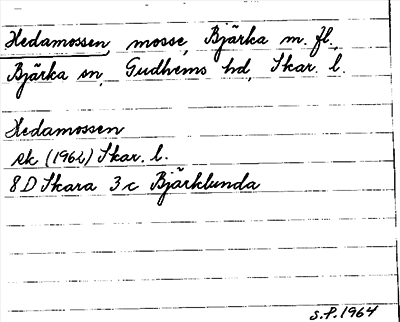 Hedamossen, mosse, Bjärka m. fl.,
Bjärka sn, Gudhems hd, Skar. l.
Hedamossen
ek (1962) Skar. l.
8 D Skara 3 c Bjärklunda
S.P. 1964